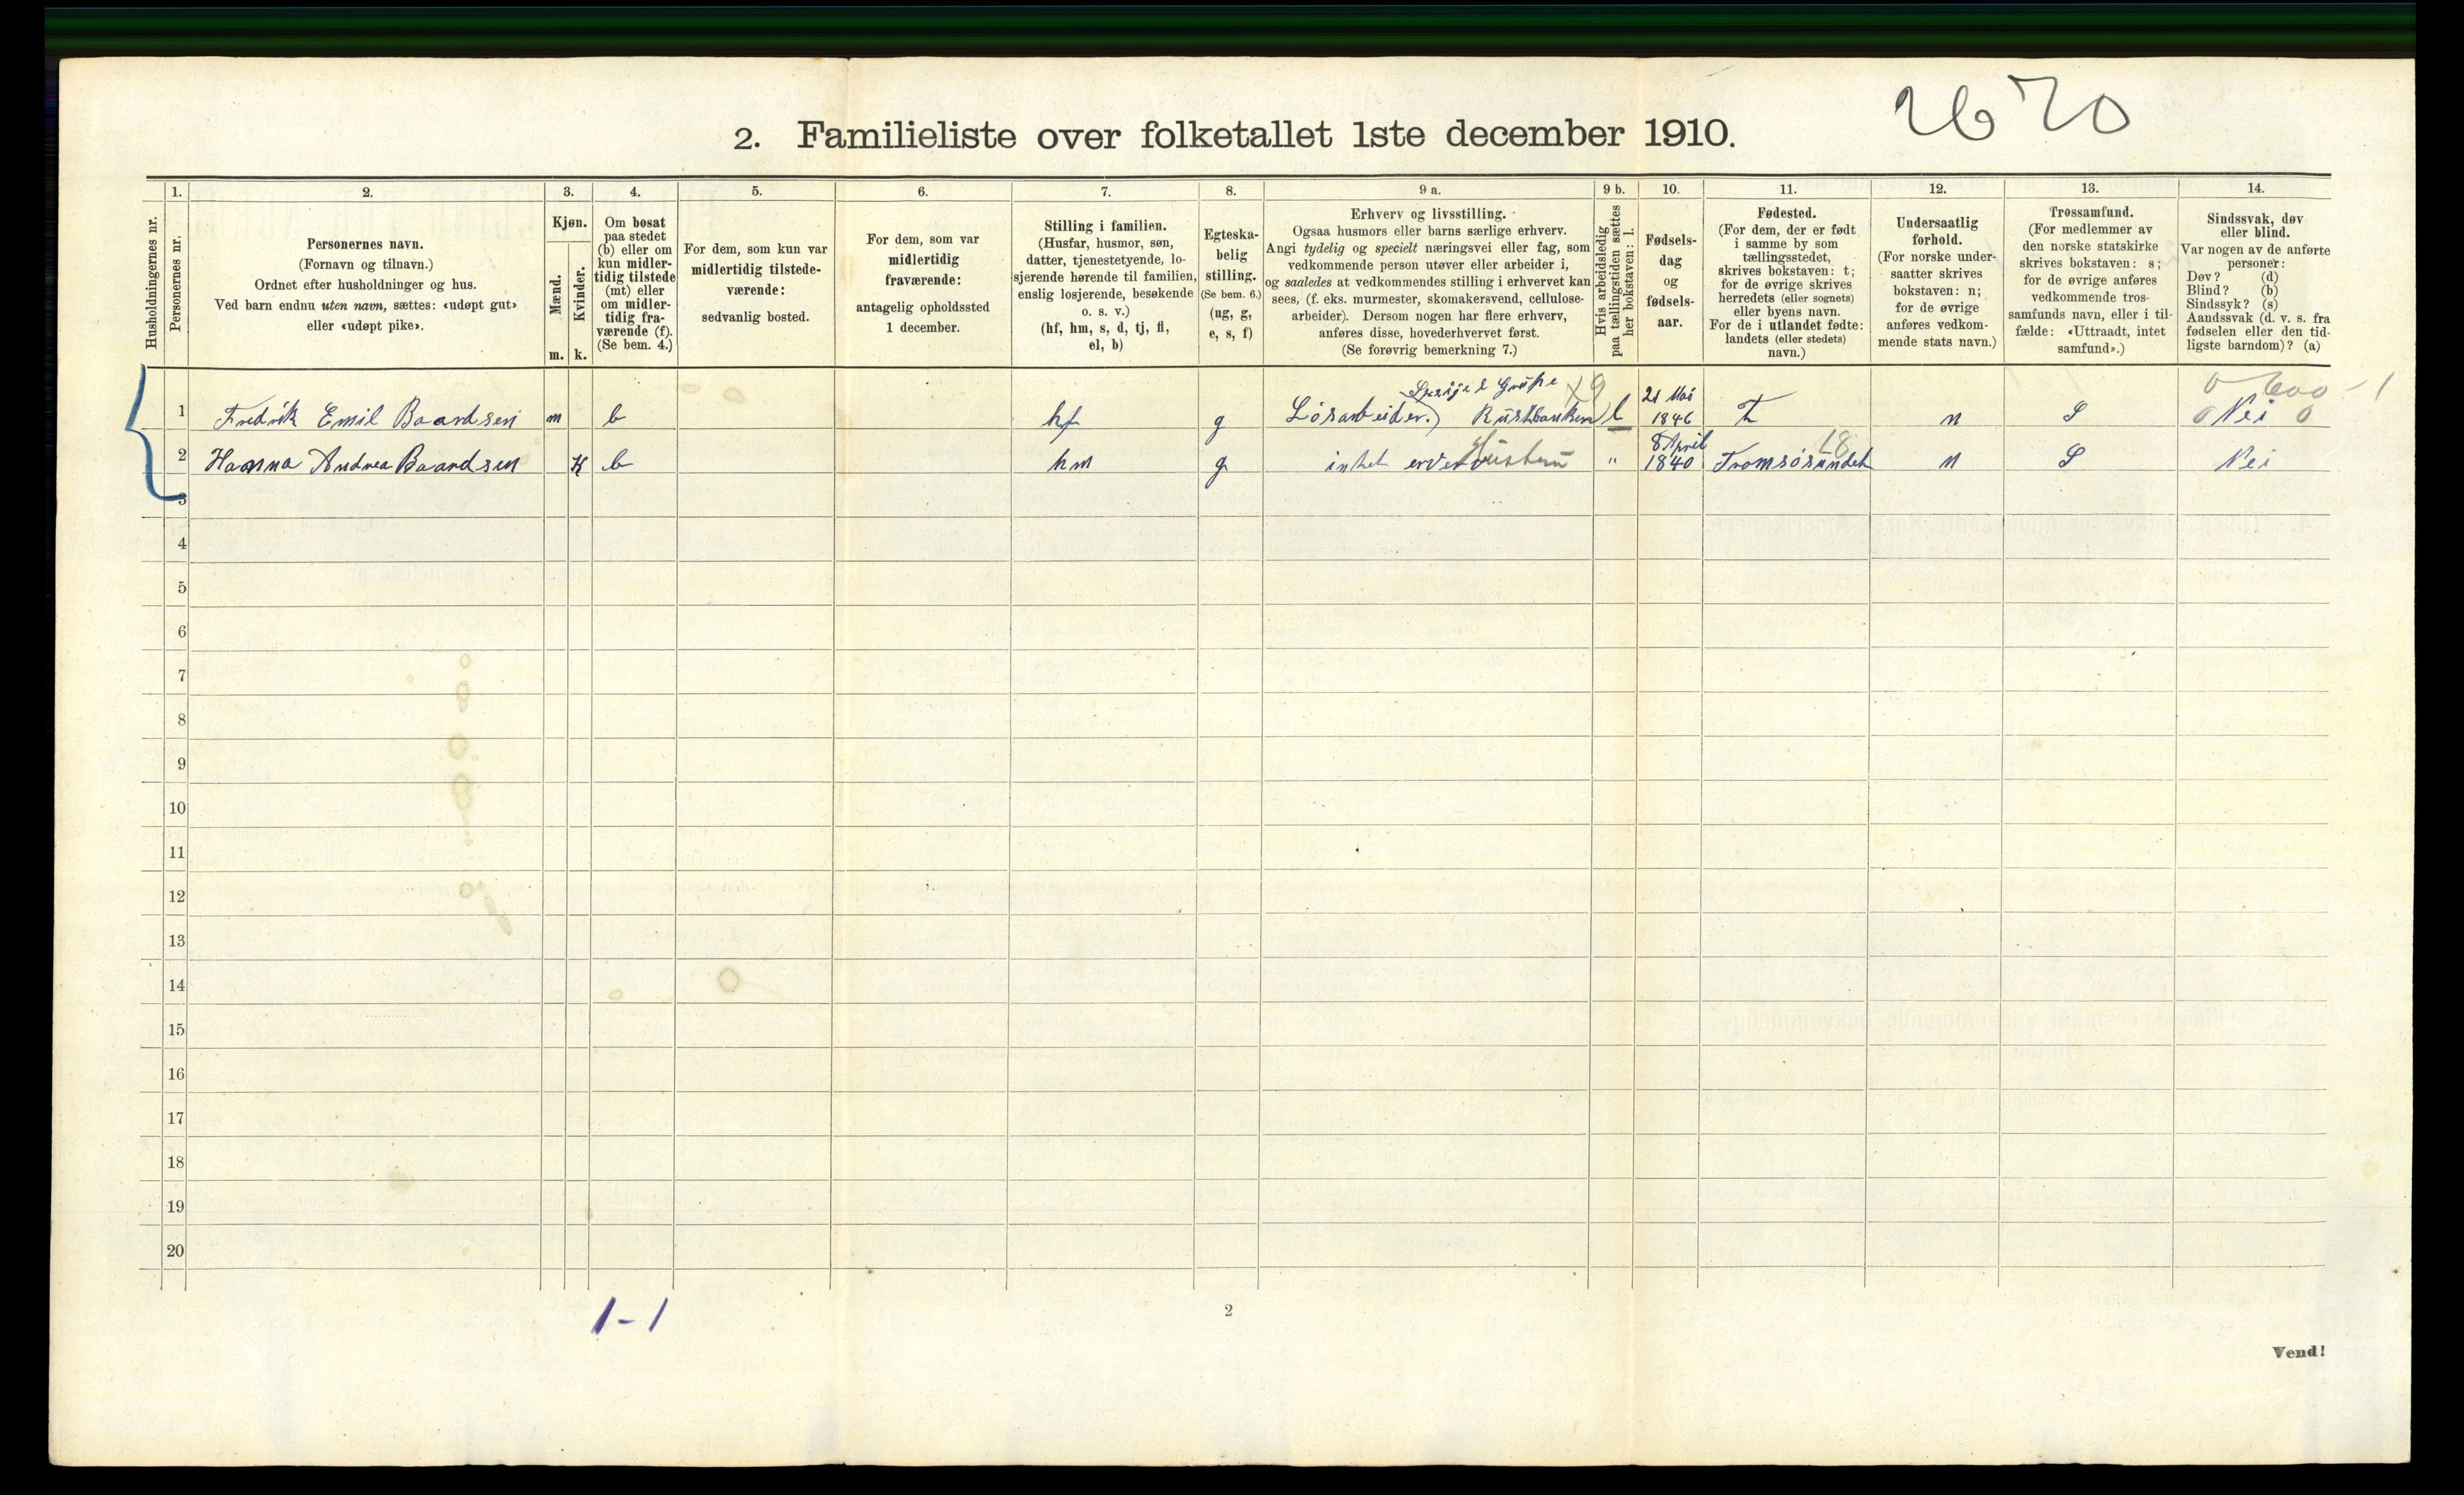 2670
2. Familieliste over folketallet 1ste december 1910.
1. 2. 3. 4. 5. 6. 7. 8. 9 a. 9 b. 10. 11. 12. 13. 14.
Husholdningernes nr.
Personernes nr.
Personernes navn.
(Fornavn og tilnavn.)
Ordnet efter husholdninger og hus.
Ved barn endnu uten navn, sættes: «udøpt gut»
eller «udøpt pike».
Kjøn.
Mænd.
m.
Kvinder.
k.
Om bosat
paa stedet
(b) eller om
kun midler-
tidig tilstede
(mt) eller
om midler-
tidig fra-
værende (f).
(Se bem. 4.)
For dem, som kun var
midlertidig tilstede-
værende:
sedvanlig bosted.
For dem, som var
midlertidig
fraværende:
antagelig opholdssted
1 december.
Stilling i familien.
(Husfar, husmor, søn,
datter, tjenestetyende, lo-
sjerende hørende til familien,
enslig losjerende, besøkende
o. s. v.)
(hf, hm, s, d, tj, fl,
el, b)
Egteska-
belig
stilling.
(Se bem. 6.)
(ug, g,
e, s, f)
Erhverv og livsstilling.
Ogsaa husmors eller barns særlige erhverv.
Angi tydelig og specielt næringsvei eller fag, som
vedkommende person utøver eller arbeider i,
og saaledes at vedkommendes stilling i erhvervet kan
sees, (f. eks. murmester, skomakersvend, cellulose-
arbeider). Dersom nogen har flere erhverv,
anføres disse, hovederhvervet først.
(Se forøvrig bemerkning 7.)
Hvis arbeidsledig
paa tællingstiden sættes
her bokstaven: l.
Fødsels-
dag
og
fødsels-
aar.
Fødested.
(For dem, der er født
i samme by som
tællingsstedet,
skrives bokstaven: t;
for de øvrige skrives
herredets (eller sognets)
eller byens navn.
For de i utlandet fødte:
landets (eller stedets)
navn.)
Undersaatlig
forhold.
(For norske under-
saatter skrives
bokstaven: n;
for de øvrige
anføres vedkom-
mende stats navn.)
Trossamfund.
(For medlemmer av
den norske statskirke
skrives bokstaven: s;
for de øvrige anføres
vedkommende tros-
samfunds navn, eller i til-
fælde: «Uttraadt, intet
samfund».)
Sindssvak, døv
eller blind.
Var nogen av de anførte
personer:
Døv? (d)
Blind? (b)
Sindssyk? (s)
Aandssvak (d. v. s. fra
fødselen eller den tid-
ligste barndom)? (a)
0 600 - 1
1 Fredrik Emil Baardsen m b hf g Løsarbeider. l 21 Mai 1846 t n S 0 Nei 0
2 Hanna Andrea Baardsen K b hm g intet erverv Hustru " 8 April 1840 Tromsøsundet 18 n S Nei
3
4
5
6
7
8
9
10
11
12
13
14
15
16
17
18
19
20
1-1
2
Vend!